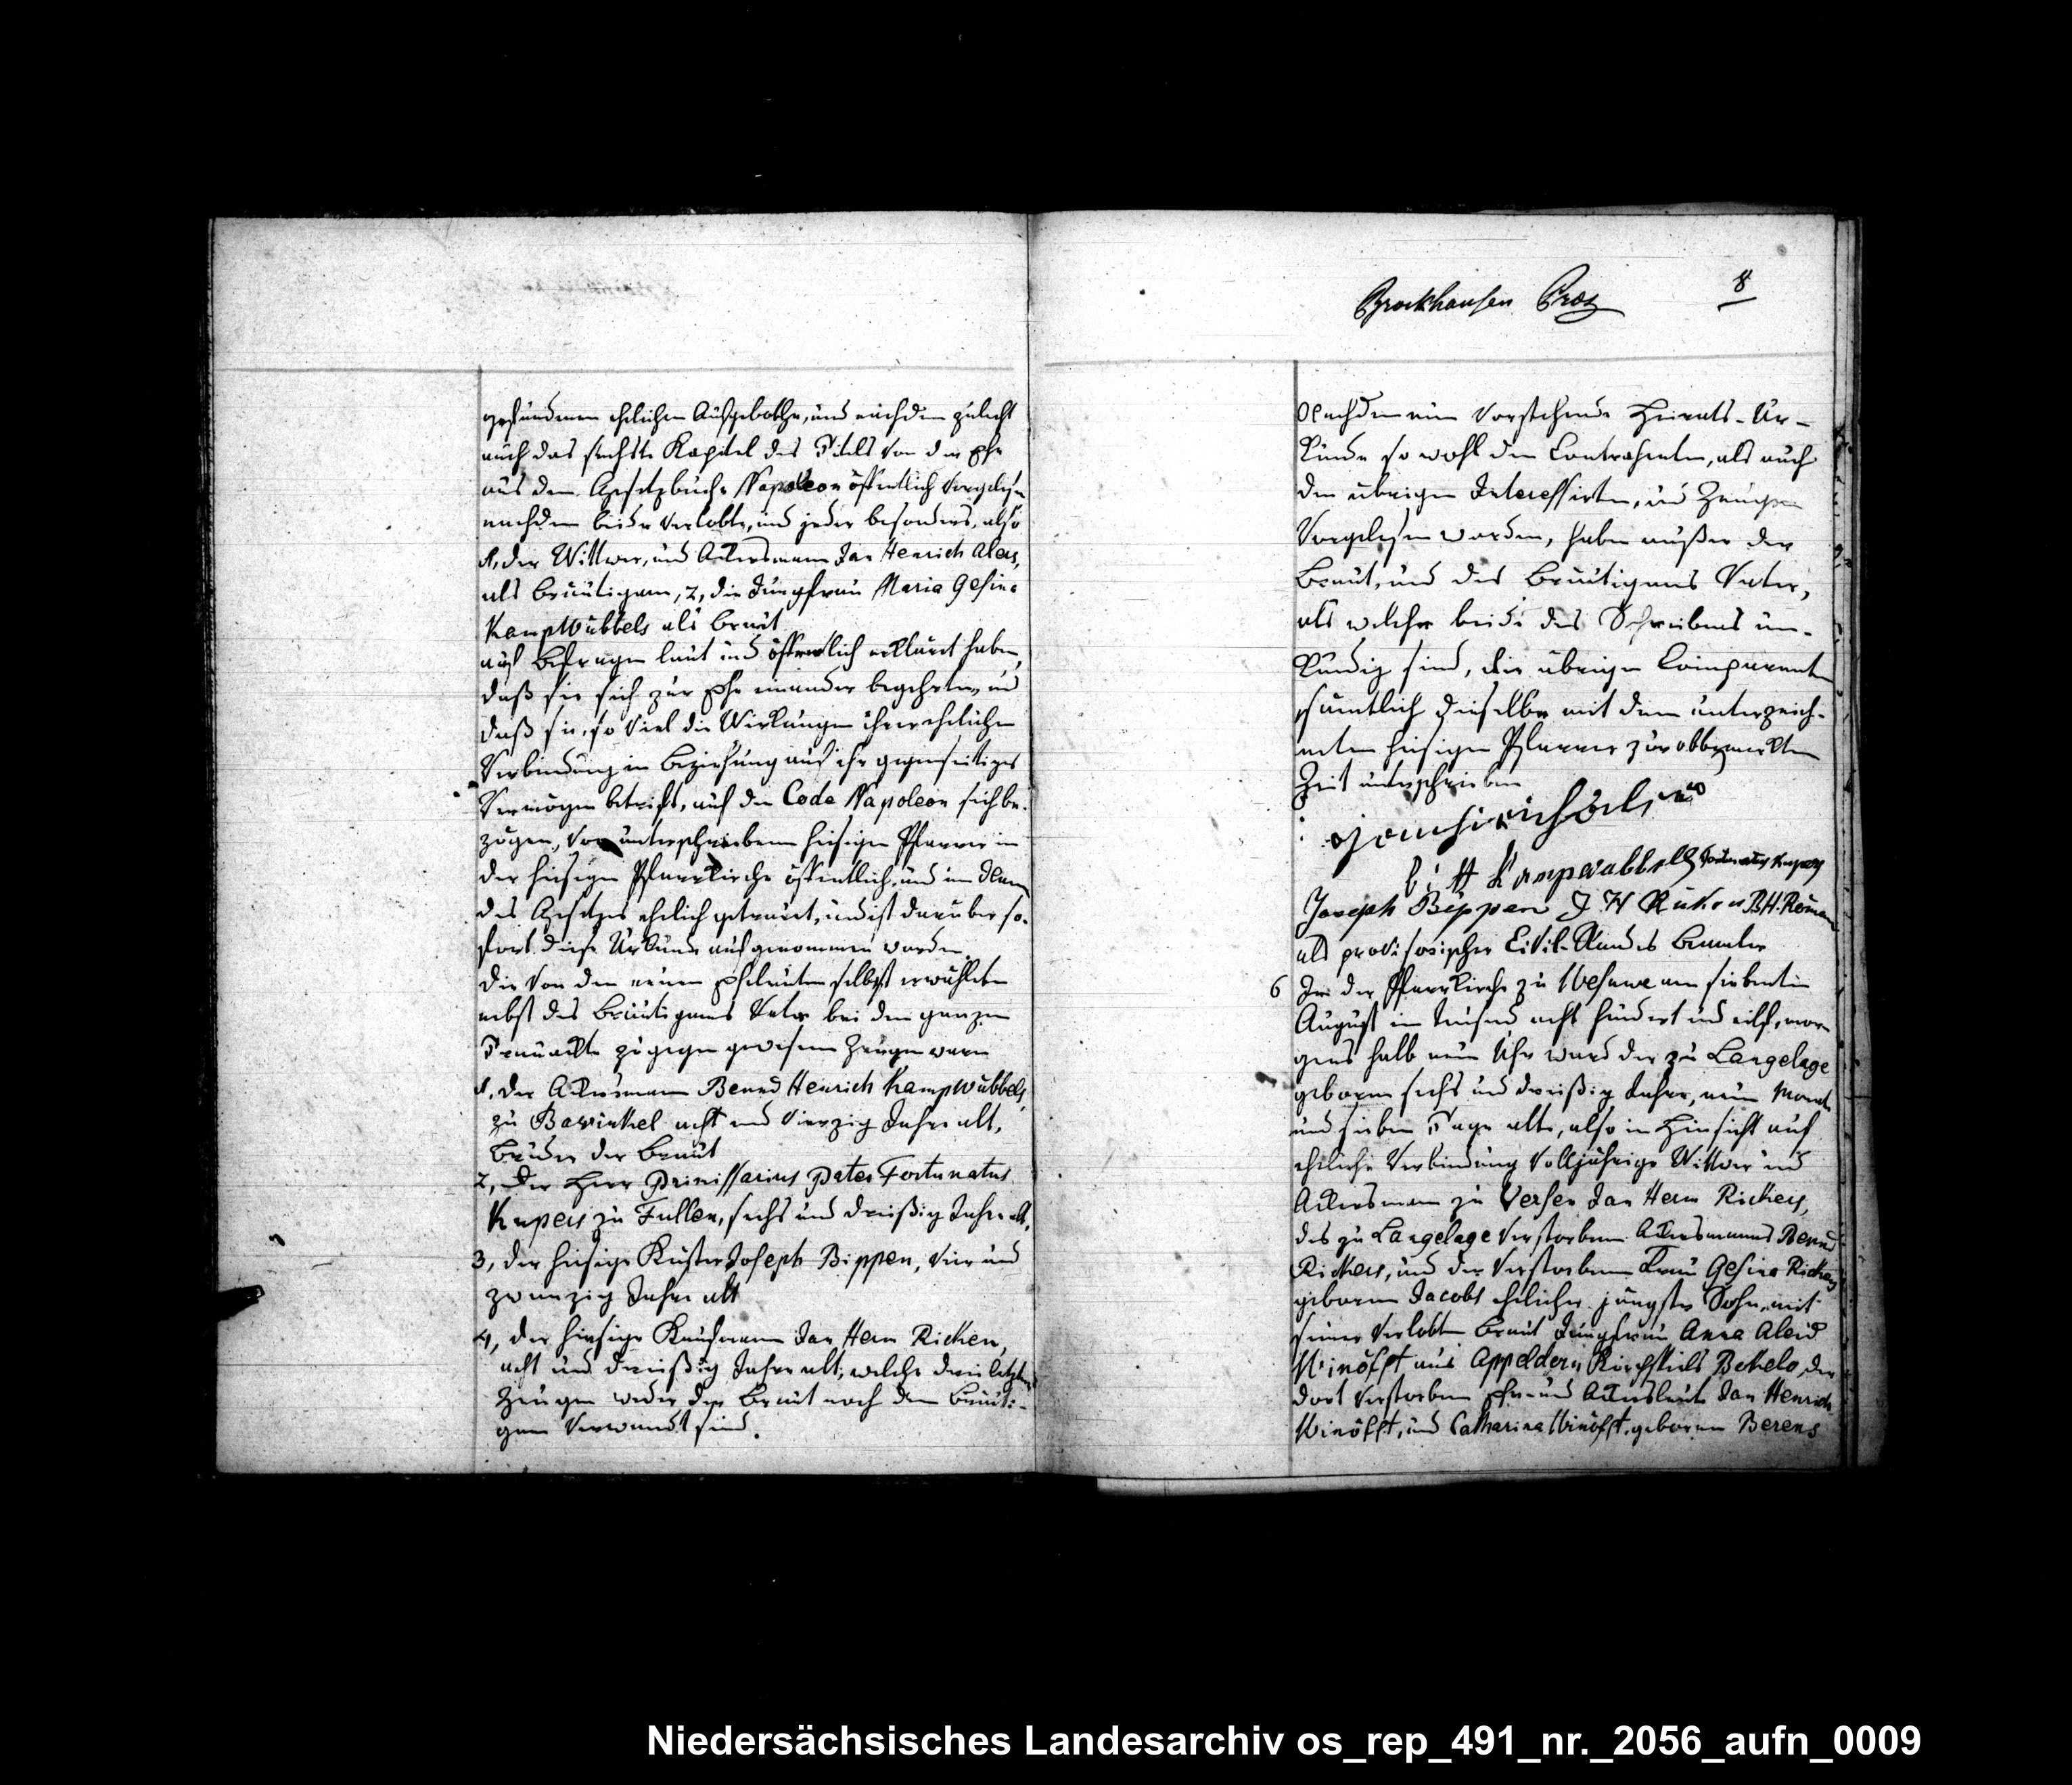 gefundenen ehelichen Aufgebothe, und nachdem zulezt
auch das sechste Kapitel des Titels von der Ehe
aus dem Gesetzbuche Napoleon öffentlich vorgelesen
nachdem beide Verlobte, und jeder besonders, also
1, der Wittwer, und Ackersmann Jan Henrich Alers,
als Bräutigam, 2, die Jungfrau Maria Gesina
Kampwübbels als Braut
auf Befragen laut und öffentlich erklärt haben,
daß sie sich zur Ehe einander begehrten, und
daß sie, so viel die Wirkungen ihrer ehelichen
Verbindung in Beziehung auf ihr gegenseitiges
Vermögen betrift, auf den Code Napoleon sich be-
zögen, von unterschriebenem hiesigen Pfarrer in
der hiesigen Pfarrkirche öffentlich, und im Namen
des Gesetzes ehelich getrauet, und ist darüber so-
fort diese Urkunde aufgenommen worden.
Die von den neuen Eheleuten selbst erwählten
nebst des Bräutigams Vater bei den ganzen
Trauackte zugegen gewesene Zeugen waren
1, der Ackersmann Bernd Henrich Kampwübbels,
zu Bawinkel acht und vierzig Jahre alt,
Bruder der Braut
2, der Herr Primissarius Pater Fortunatus
Kupers zu Fullen, sechs und dreißig Jahre alt,
3, der hiesige Küster Joseph Bippen, vier und
zwanzig Jahre alt
4, der hiesige Kaufmann Jan Herm Ricken,
acht und dreißig Jahre alt, welche drei letzten
Zeugen weder der Braut noch dem Bräuti-
gam verwandt sind.
Brockhausen
8
Nachdem nun vorstehende Heirats-Ur-
kunde so wohl den Contrahenten, als auch
den übrigen Interessirten, und Zeugen
vorgelesen worden, haben außer der
Braut, und des Bräutigams Vater,
als welche beide des Schreibens un-
kündig sind, die übrigen Comparenten
sämtlich dieselbe mit dem unterzeich-
neten hiesigen Pfarrer zur obbemerkten
Zeit unterschrieben
janhinrich
b: H Kampwübbels Fortunatus Kupers
Joseph Bippen J H Ricken B.H.
als provisorischer Civil-Standes Beamter
6 In der Pfarrkirche zu Wesuwe am siebenten
August im tausend acht hundert und eilf, mor-
gens halb neun Uhr ward der zu Langelage
geborne sechs und dreißig Jahre, neun Monate
und sieben Tage alte, also in Hinsicht auf
eheliche Verbindung volljährige Wittwer und
Ackersmann zu Versen Jan Herm Rickers,
des zu Langelage verstorbenen Ackersmanns Bernd
Rickers, und der verstorbenen Frau Gesina Rickers
gebornen Jacobs ehelicher jüngster Sohn, mit
seiner verlobten Braut Jungfrau Anna Aleid
Winöfft aus Appeldorn Kirchspiels Bokelo, der
dort verstorbenen Ehe- und Ackersleute Jan Henrich
Winöfft, und Catharina Winöfft, gebornen Berens
Niedersächsisches Landesarchiv os_rep_491_nr._2056_aufn_0009